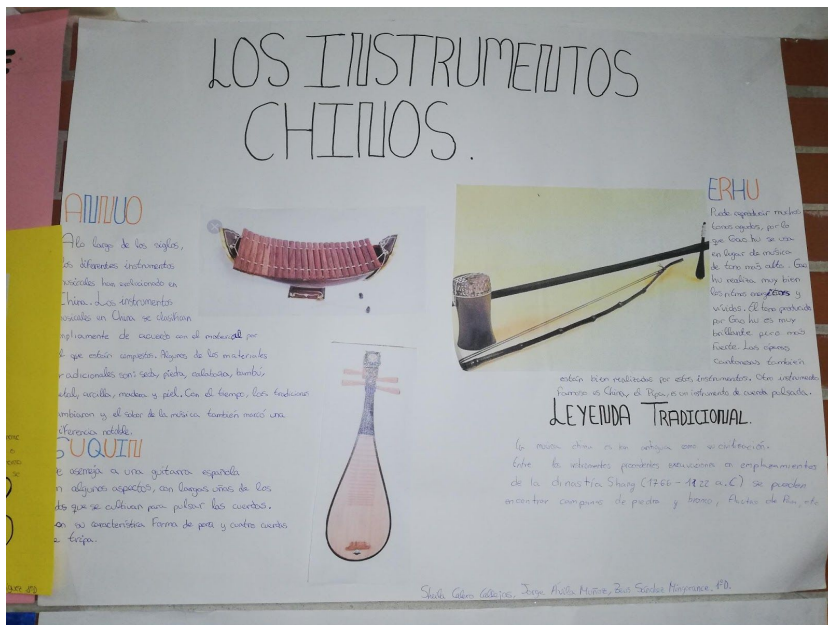 LOS INSTRUMENTOS
CHINOS.
ANNUO
A lo largo de los siglos,
los diferentes instrumentos
musicales han evolucionado en
China. Los instrumentos
musicales en China se clasifican
ampliamente de acuerdo con el material por
el que están compuestos. Algunos de los materiales
tradicionales son: seda, piedra, calabaza, bambú,
metal, arcilla, madera y piel. Con el tiempo, las tradiciones
cambiaron y el sabor de la música también marcó una
diferencia notable.
SUQUIN
Se asemeja a una guitarra española
en algunos aspectos, con largas uñas de los
dedos que se cultivan para pulsar las cuerdas.
Con su característica forma de pera y cuatro cuerdas
de tripa.
ERHU
Puede reproducir muchos
tonos agudos, por lo
que Gao hu se usa
en lugar de música
de tono más alto. Gao
hu realiza muy bien
los ritmos y
vívidos. El tono producido
por Gao hu es muy
brillante pero más
fuerte. Las óperas
cantonesas también
están bien realizadas por estos instrumentos. Otro instrumento
famoso es China, el Pipa, es un instrumento de cuerda pulsada.
LEYENDA TRADICIONAL.
La música china es tan antigua como su civilización.
Entre los procedentes en emplazamientos
de la dinastía Shang (1766 - 1122 a.C) se pueden
encontrar campanas de piedra y bronce, flautas de Pan, etc
Sheila Calero Callejas, Jorge Muñoz, 1ºD.